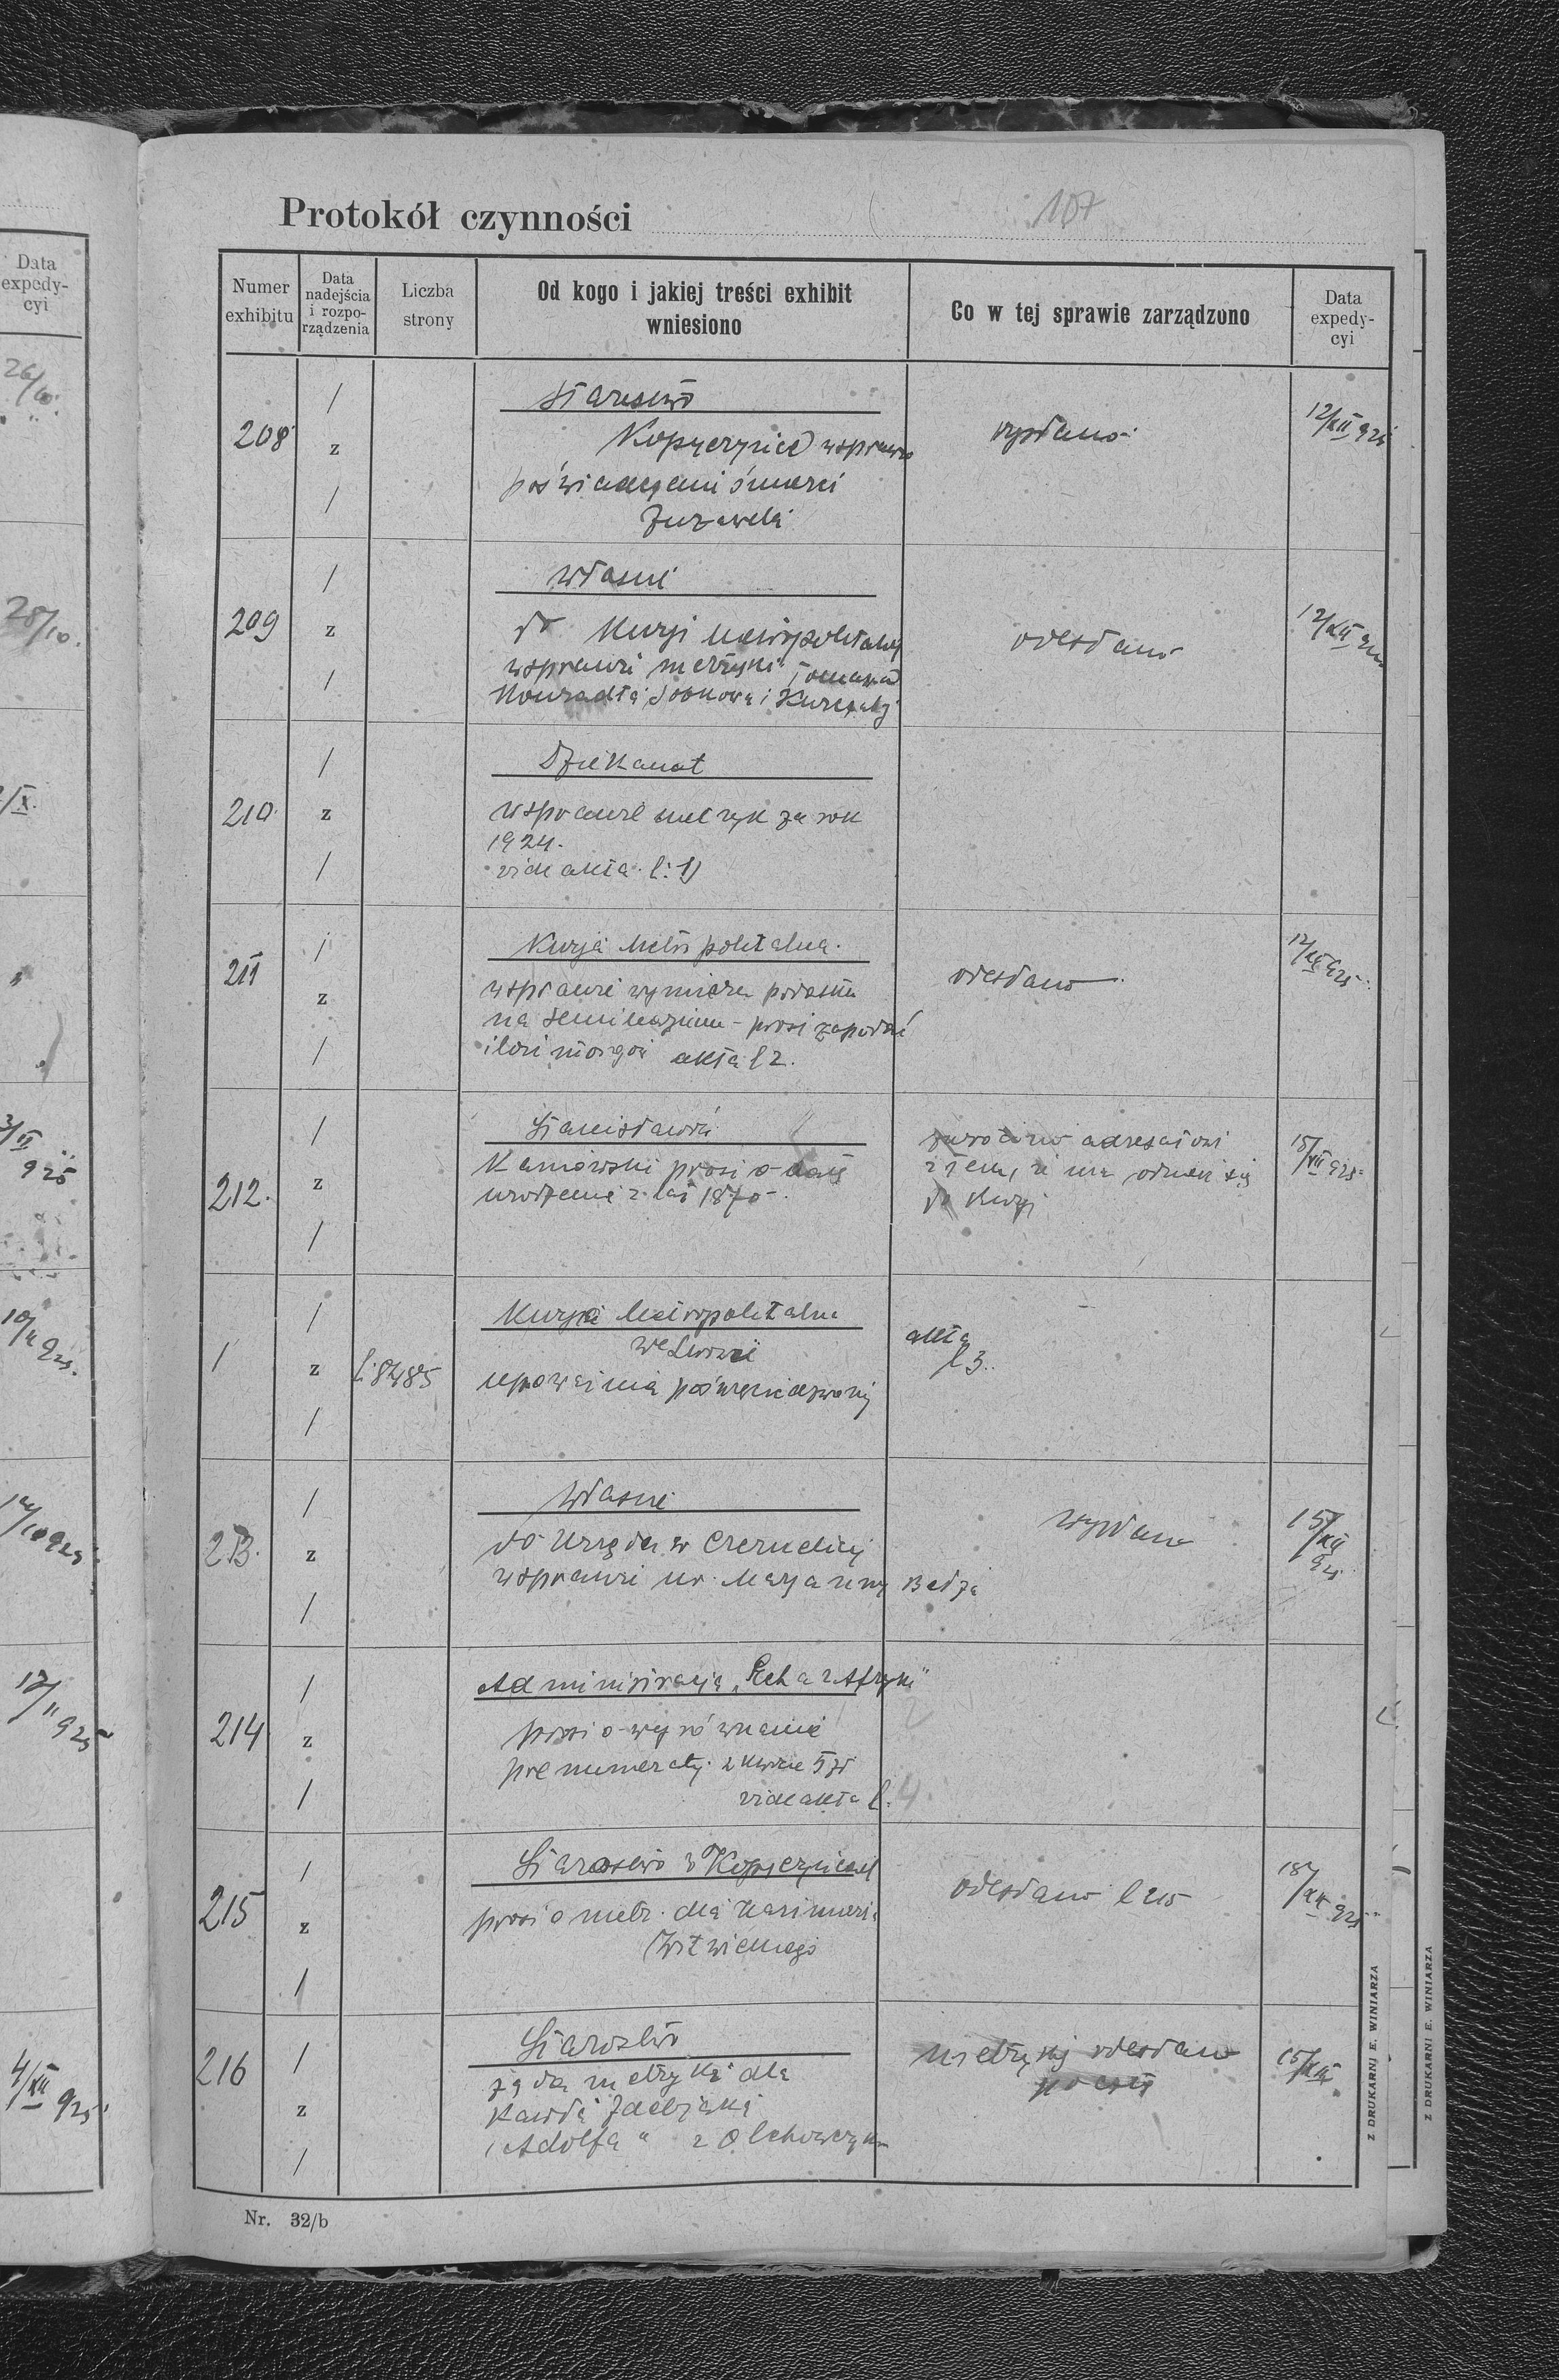 Data
expedy-
cyi
26/10
28/10.
/X.
925
12/10 925
17/11 925
4/XII 925
Protokół czynności
107
Numer
exhibitu
Data
nadejścia
i rozpo-
rządzenia
Liczba
strony
Od kogo i jakiej treści exhibit
wniesiono
Co w tej sprawie zarządzono
Data
expedy-
cyi
208
z
Starostwo
Kopyczyńce w sprawie
poświadczeni śmierci
wysłano
12/XII 925
209
z
Własne
do Kuryi Metropolitalnej
w sprawie metryki
odesłano
12/XII
210
z
Dziekanat
w sprawie metryk za rok
1924.
vide akta l: 1)
211
z
Kurja Metropolitalna.
w sprawie wymiaru podatku
na seminaryum - prosi zapodać
ilość morgów akta l 2.
odesłano
12/XII 925
212.
z
Stanisław
prosi o datę
urodzenia z lat 1870.
zwrócono adresatowi
z tem, że ma odnieść się
do Kurji
15/XII 925
z
l: 8485
Kurya Metropolitalna
we Lwowie
akta
l 3.
213.
z
Własne
do Urzędu w Czernelicy
w sprawie ur. Maryanny
wysłano
15/XII 925
214
z
Administracja „Echa z Afryki"
prosi o wyrównanie
prenumeraty w kwocie 5 zł
vide akta l. 4.
215
z
Starostwo w Kopyczyńcach
prosi o metr. dla Kazimierza
Witwickiego
odesłano l 215
18/XII 925
216
z
Starostwo
żąda metryki dla
Karola
„Adolfa" z Olchowczyka
metrykę odesłano
pocztą
15/XII
Nr. 32/b
Z DRUKARNI E. WINIARZA
Z DRUKARNI E. WINIARZA